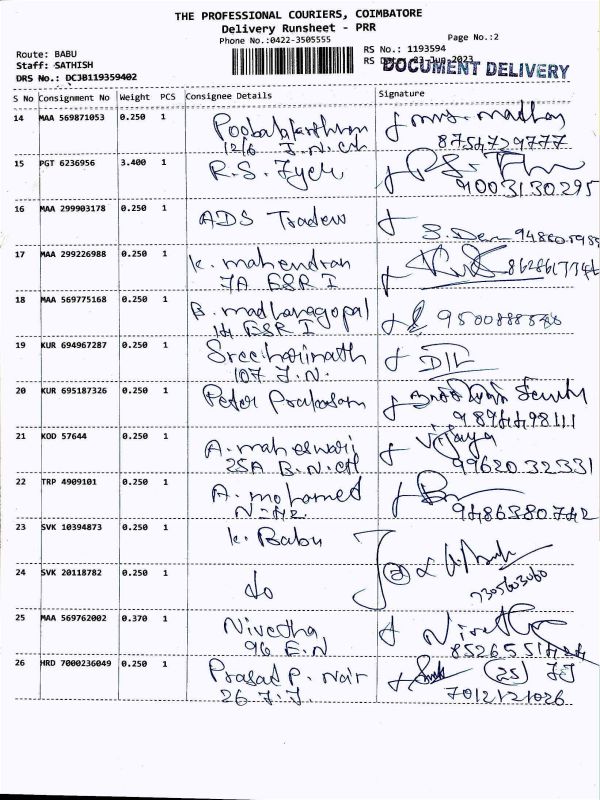 THE PROFESSIONAL COURIERS, COIMBATORE
Delivery Runsheet - PRR
Phone No.:0422-3505555
Page No.:2
Route: BABU
Staff: SATHISH
DRS No.: DCJB119359402
RS No.: 1193594
RS 23-Jun-2023
DOCUMENT DELIVERY
S No Consignment No Weight PCS Consignee Details Signature
14 MAA 569871053 0.250 1
8754729777
15 PGT 6236956 3.400 1 R.S.
9100313 0295
16 MAA 299903178 0.250 1 ADS Traders
17 MAA 299226988 0.250 1 K. mahendran
7A ESR I
18 MAA 569775168 0.250 1 B. madhanagopal
14 ESR I
19 KUR 694967287 0.250 1 Sreeharinath
107 J.N.
20 KUR 695187326 0.250 1 Peter Prakasam
9894498111
21 KOD 57644 0.250 1 A. maheswari Vijaya
25A B.N.
99620 32331
22 TRP 4909101 0.250 1 A. mohamed
N-42
9486380742
23 SVK 10394873 0.250 1 K. Babu
24 SVK 20118782 0.250 1 do
25 MAA 569762002 0.370 1 Nivetha
96 E.N
26 HRD 7000236049 0.250 1 Prasad P. Nair (25) JJ
26 J.J.
7012121026